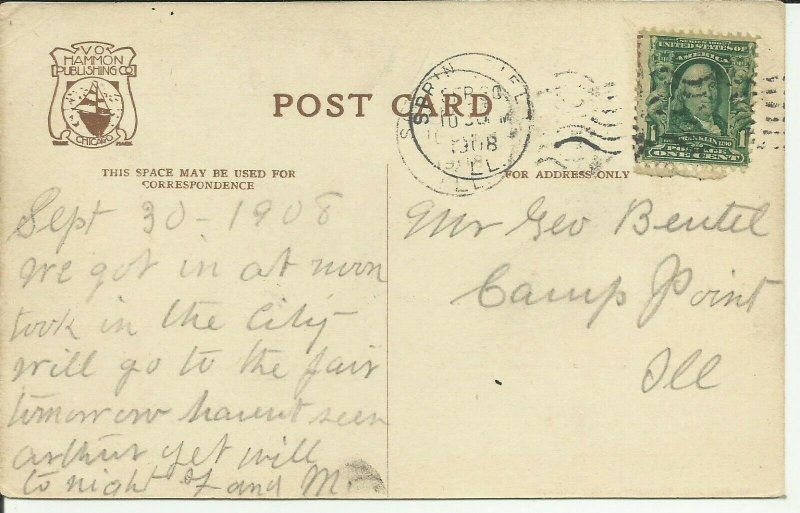 V.O.
HAMMON
PUBLISHING CO
CHICAGO
POST CARD
SEP 30
1908
ILL.
SERIES 1902
UNITED STATES OF
AMERICA
FRANKLIN
1 POSTAGE 1
ONE CENT
THIS SPACE MAY BE USED FOR
CORRESPONDENCE
FOR ADDRESS ONLY
Sept 30 - 1908
we got in at noon
took in the City
will go to the fair
tomorrow havent seen
arthur yet will
to night L and M.
Mr Geo Bentel
Camp Point
Ill